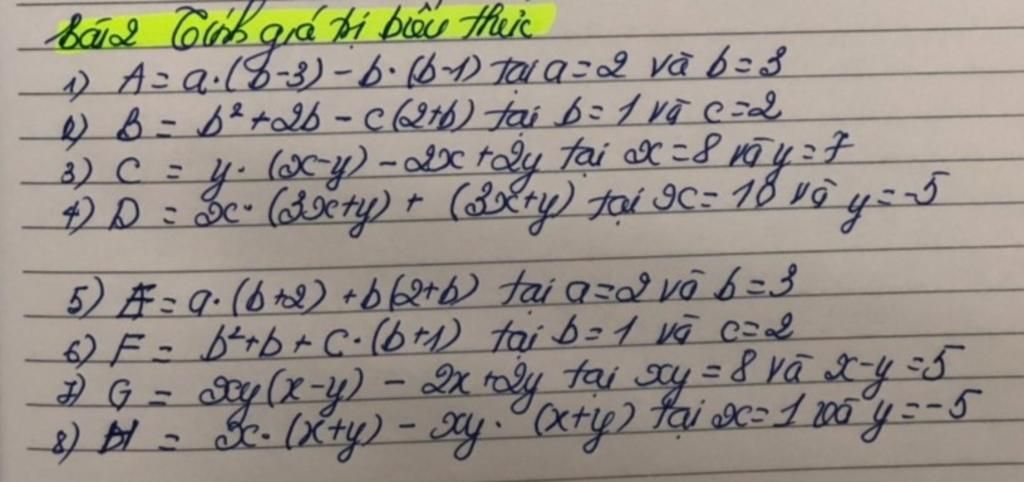 Bài 2 Tính giá trị biểu thức
1) A = a.(b-3) - b.(b-1) tại a = 2 và b = 3
2) B = b²+2b - c(2+b) tại b = 1 và c = 2
3) C = y.(x-y) - 2x+2y tại x = 8 và y = 7
4) D = x.(3x+y) + (3x+y) tại x = 10 và y = -5
5) E = a.(b+2) + b(2+b) tại a = 2 và b = 3
6) F = b²+b + c.(b+1) tại b = 1 và c = 2
7) G = xy(x-y) - 2x+2y tại xy = 8 và x-y = 5
8) H = x.(x+y) - xy.(x+y) tại x = 1 và y = -5